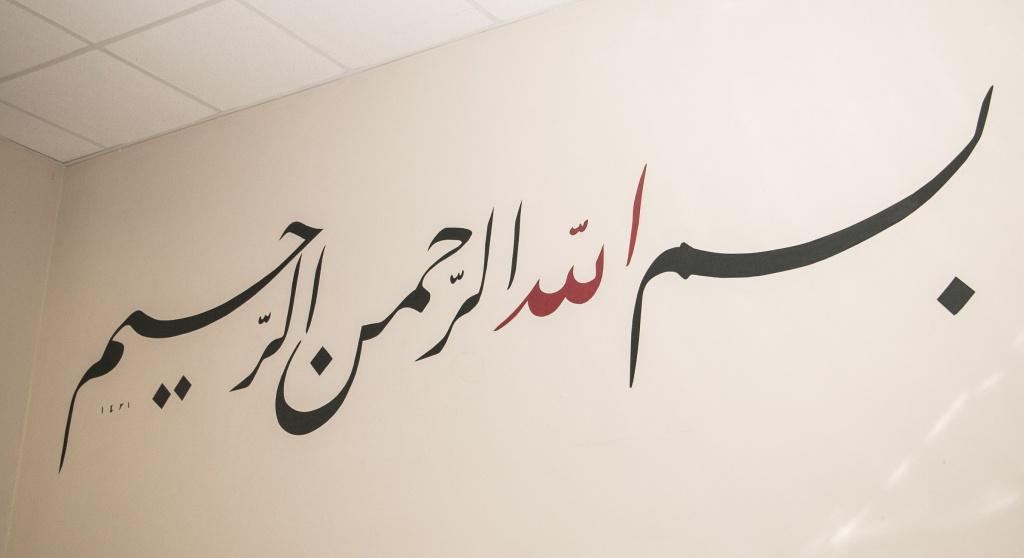 بسم الله الرّحمن الرّحيم
١٤٣١